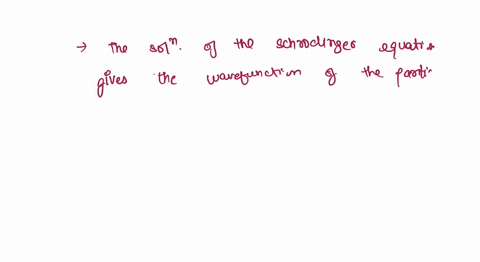 → The solⁿ. of the schrodinger equati
gives the wavefunction of the parti